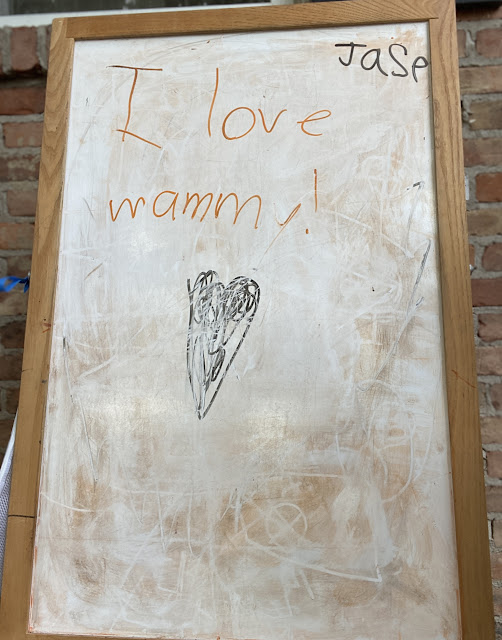 Jase
I love
mammy!